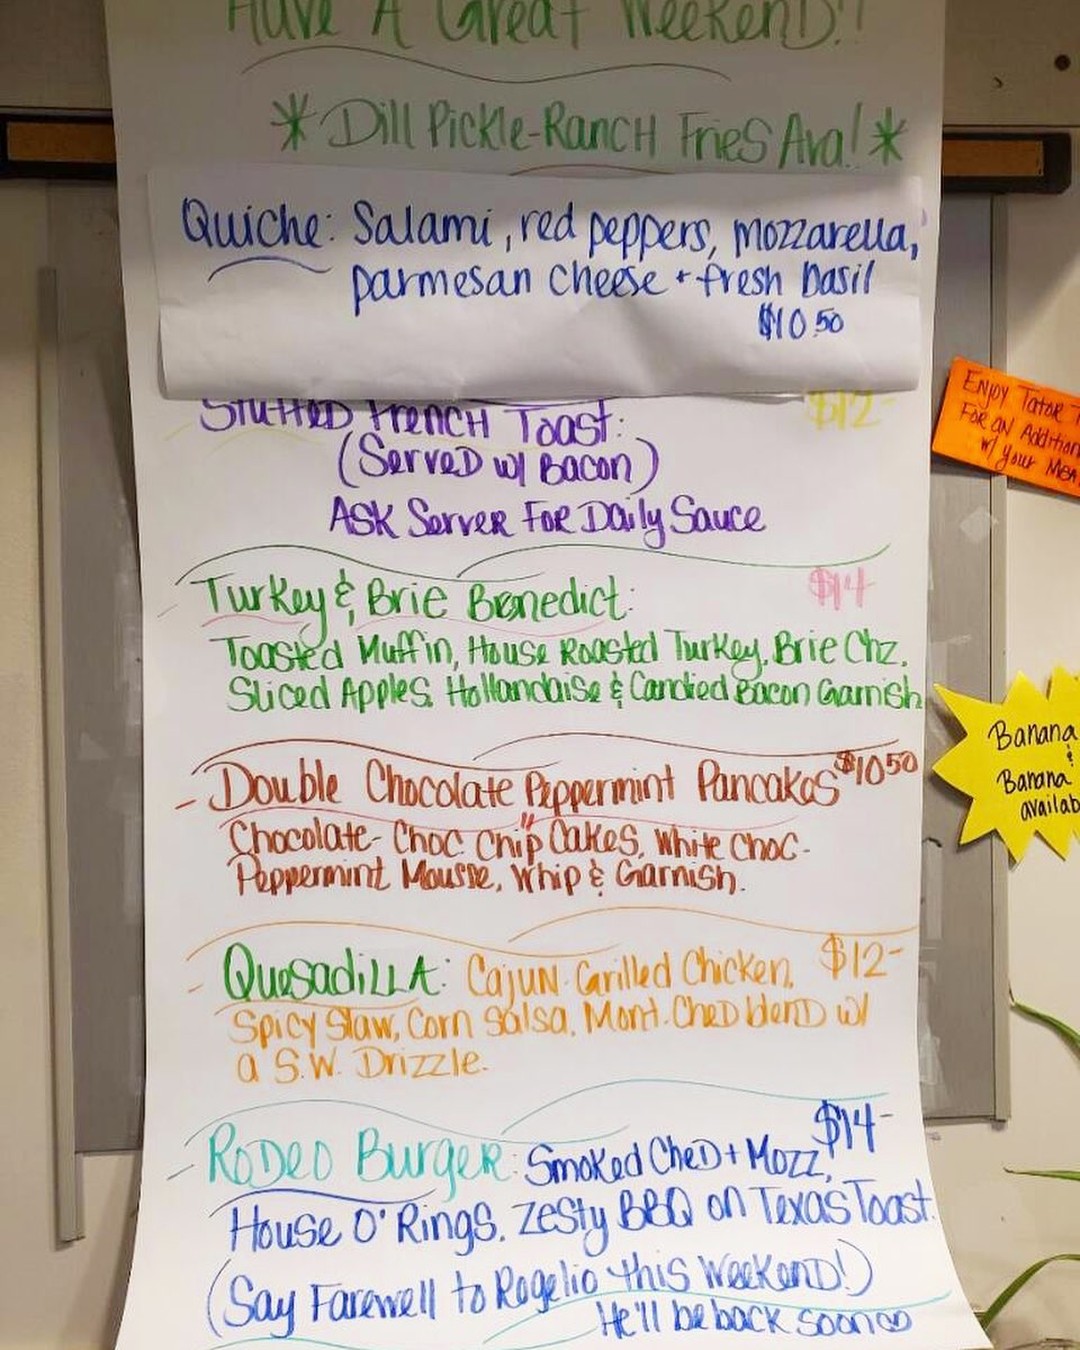 Have A Great Weekend!!
*Dill Pickle-Ranch Fries Ava!*
Quiche: Salami, red peppers, mozzarella,
parmesan cheese + fresh basil
$10.50
Stuffed French Toast: $12-
(Served w/ Bacon)
Ask Server For Daily Sauce
Turkey & Brie Benedict: $14
Toasted Muffin, House Roasted Turkey, Brie Chz,
Sliced Apples, Hollandaise & Candied Bacon Garnish
- Double Chocolate Peppermint Pancakes $10.50
Chocolate-Choc Chip Cakes, White Choc-
Peppermint Mousse, Whip & Garnish.
- Quesadilla: Cajun Grilled Chicken, $12-
Spicy Slaw, Corn Salsa, Mont. Ched blend w/
a S.W. Drizzle.
- Rodeo Burger: Smoked Ched + Mozz, $14-
House O' Rings, Zesty BBQ on Texas Toast.
(Say Farewell to Rogelio this Weekend!)
He'll be back soon
Enjoy Tator T
For an Addition
w/ your Me
Banana
&
Banana
availab